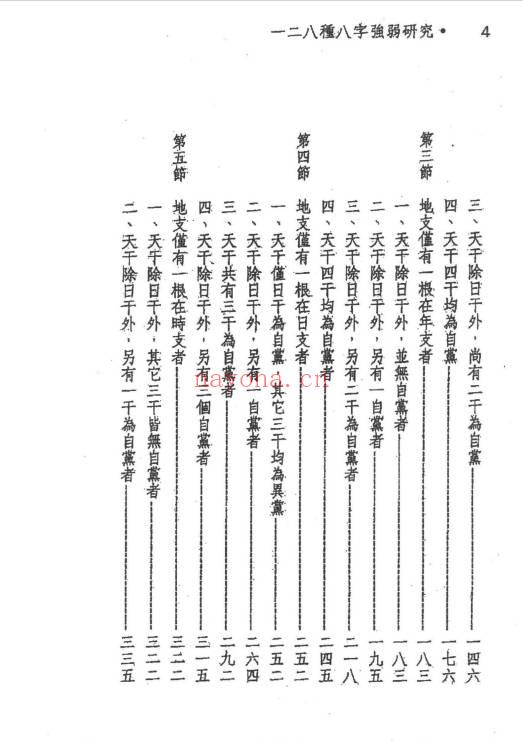 一二八種八字強弱研究・ 4
三、天干除日干外，尚有二干為自黨 一四六
四、天干四干均為自黨 一七六
第三節 地支僅有一根在年支者 一八三
一、天干除日干外，並無自黨者 一八三
二、天干除日干外，另有一自黨者 一九五
三、天干除日干外，另有二干為自黨者 二一八
四、天干四干均為自黨者 二四五
第四節 地支僅有一根在日支者 二五二
一、天干僅日干為自黨，其它三干均為異黨 二五二
二、天干除日干外，另有一自黨者 二六四
三、天干共有三干為自黨者 二九二
四、天干除日干外，另有三個自黨者 三一五
第五節 地支僅有一根在時支者 三二二
一、天干除日干外，其它三干皆無自黨者 三二二
二、天干除日干外，另有一干為自黨者 三三五
nayona.cn